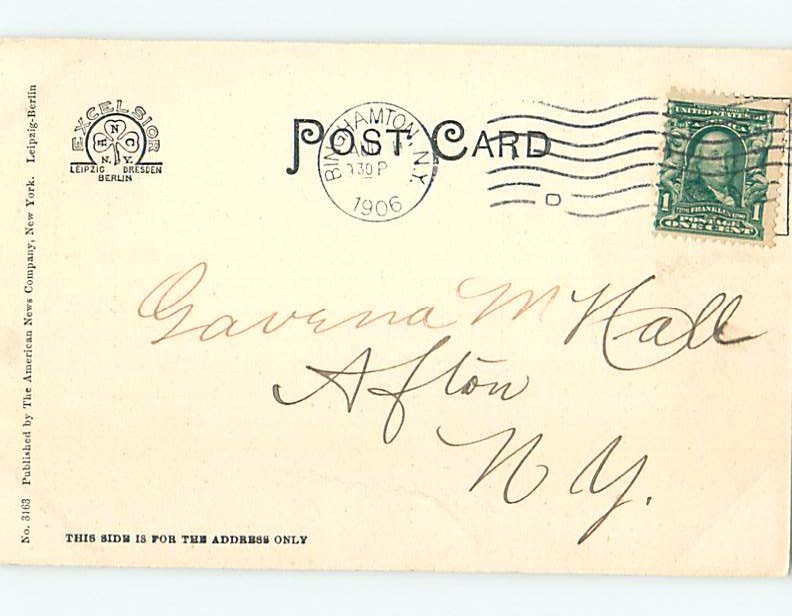 EXCELSIOR
A N C
N. Y.
LEIPZIG DRESDEN
BERLIN
POST CARD
BINGHAMTON, N.Y.
30 P
1906
D
UNITED STATES OF
1 FRANKLIN 1
POSTAGE
ONE CENT
Gavena M Hall
Afton
N Y.
THIS SIDE IS FOR THE ADDRESS ONLY
No. 3163 Published by The American News Company, New York. Leipzig-Berlin